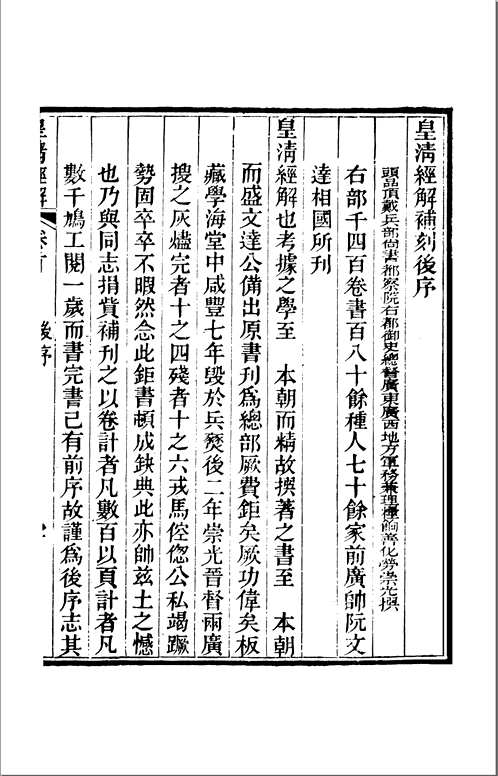 皇清經解補刻後序
頭品頂戴兵部尚書都察院右都御史總督廣東廣西地方軍務兼理糧餉善化勞崇光撰
右部千四百卷書百八十餘種人七十餘家前廣帥阮文
達相國所刊
皇清經解也考據之學至 本朝而精故撰著之書至 本朝
而盛文達公備出原書刊爲總部厥費鉅矣厥功偉矣板
藏學海堂中咸豐七年毀於兵燹後二年崇光晉督兩廣
搜之灰燼完者十之四殘者十之六戎馬倥偬公私竭蹶
勢固卒卒不暇然念此鉅書頓成缺典此亦帥兹土之憾
也乃與同志捐貲補刊之以卷計者凡數百以頁計者凡
數千鳩工閱一歲而書完書已有前序故謹爲後序志其
皇清經解 卷首 後序